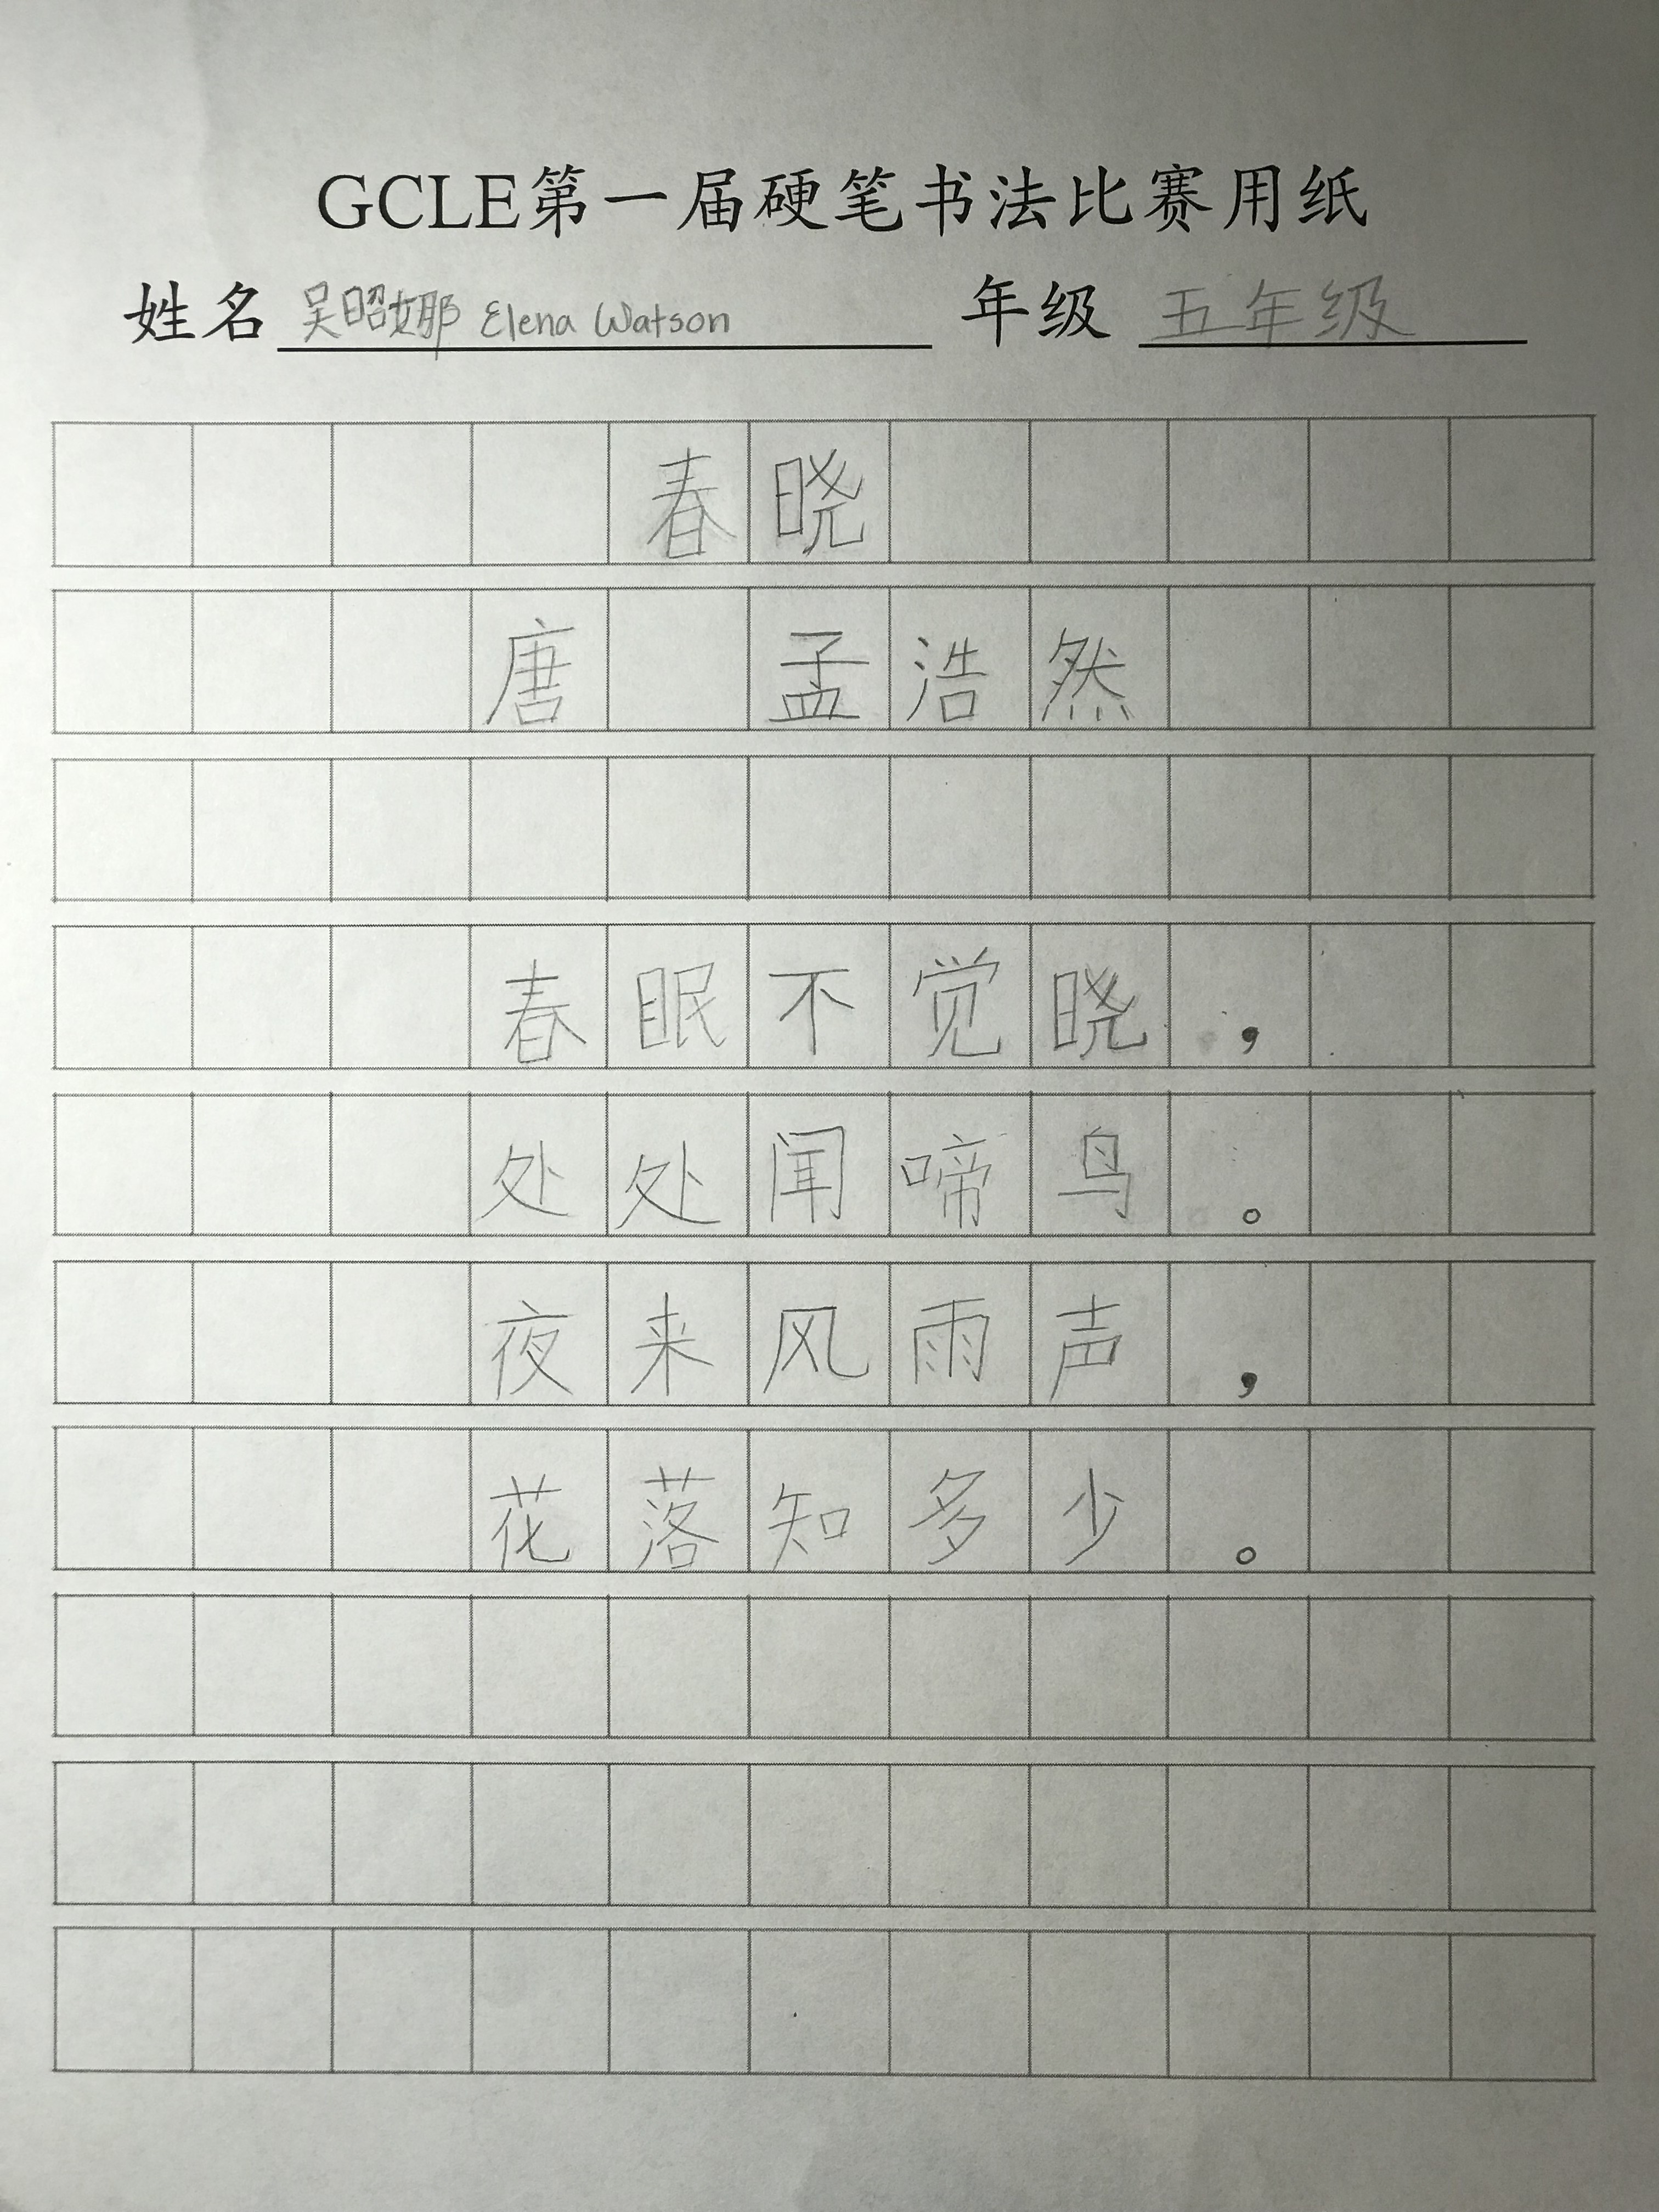 GCLE第一届硬笔书法比赛用纸
姓名 吴昭娜 Elena Watson 年级 五年级
春晓
唐 孟浩然
春眠不觉晓，
处处闻啼鸟。
夜来风雨声，
花落知多少。